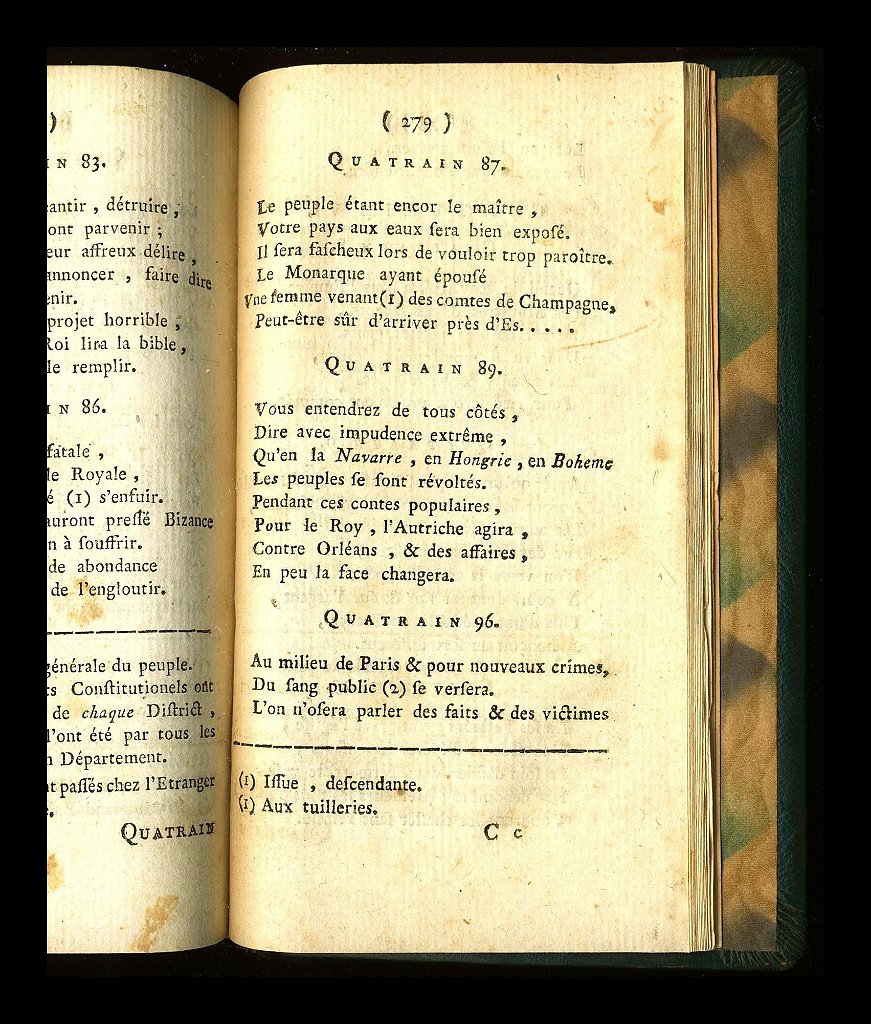 )
IN 83.
antir , détruire ,
ont parvenir ;
eur affreux délire ,
annoncer , faire dire
enir.
projet horrible ,
Roi lira la bible ,
le remplir.
IN 86.
fatale ,
le Royale ,
é (1) s'enfuir.
auront preſſé Bizance
n à ſouffrir.
de abondance
de l'engloutir.
générale du peuple.
ts Conſtitutionels ont
de chaque Diſtrict ,
l'ont été par tous les
n Département.
nt paſſés chez l'Etranger
QUATRAIN
( 279 )
QUATRAIN 87.
Le peuple étant encor le maître ,
Votre pays aux eaux ſera bien expoſé.
Il ſera faſcheux lors de vouloir trop paroître.
Le Monarque ayant épouſé
Vne femme venant (1) des comtes de Champagne,
Peut-être sûr d'arriver près d'Es.....
QUATRAIN 89.
Vous entendrez de tous côtés ,
Dire avec impudence extrême ,
Qu'en la Navarre , en Hongrie , en Boheme
Les peuples ſe ſont révoltés.
Pendant ces contes populaires ,
Pour le Roy , l'Autriche agira ,
Contre Orléans , & des affaires ,
En peu la face changera.
QUATRAIN 96.
Au milieu de Paris & pour nouveaux crimes,
Du ſang public (2) ſe verſera.
L'on n'oſera parler des faits & des victimes
(1) Iſſue , deſcendante.
(1) Aux tuilleries.
C c